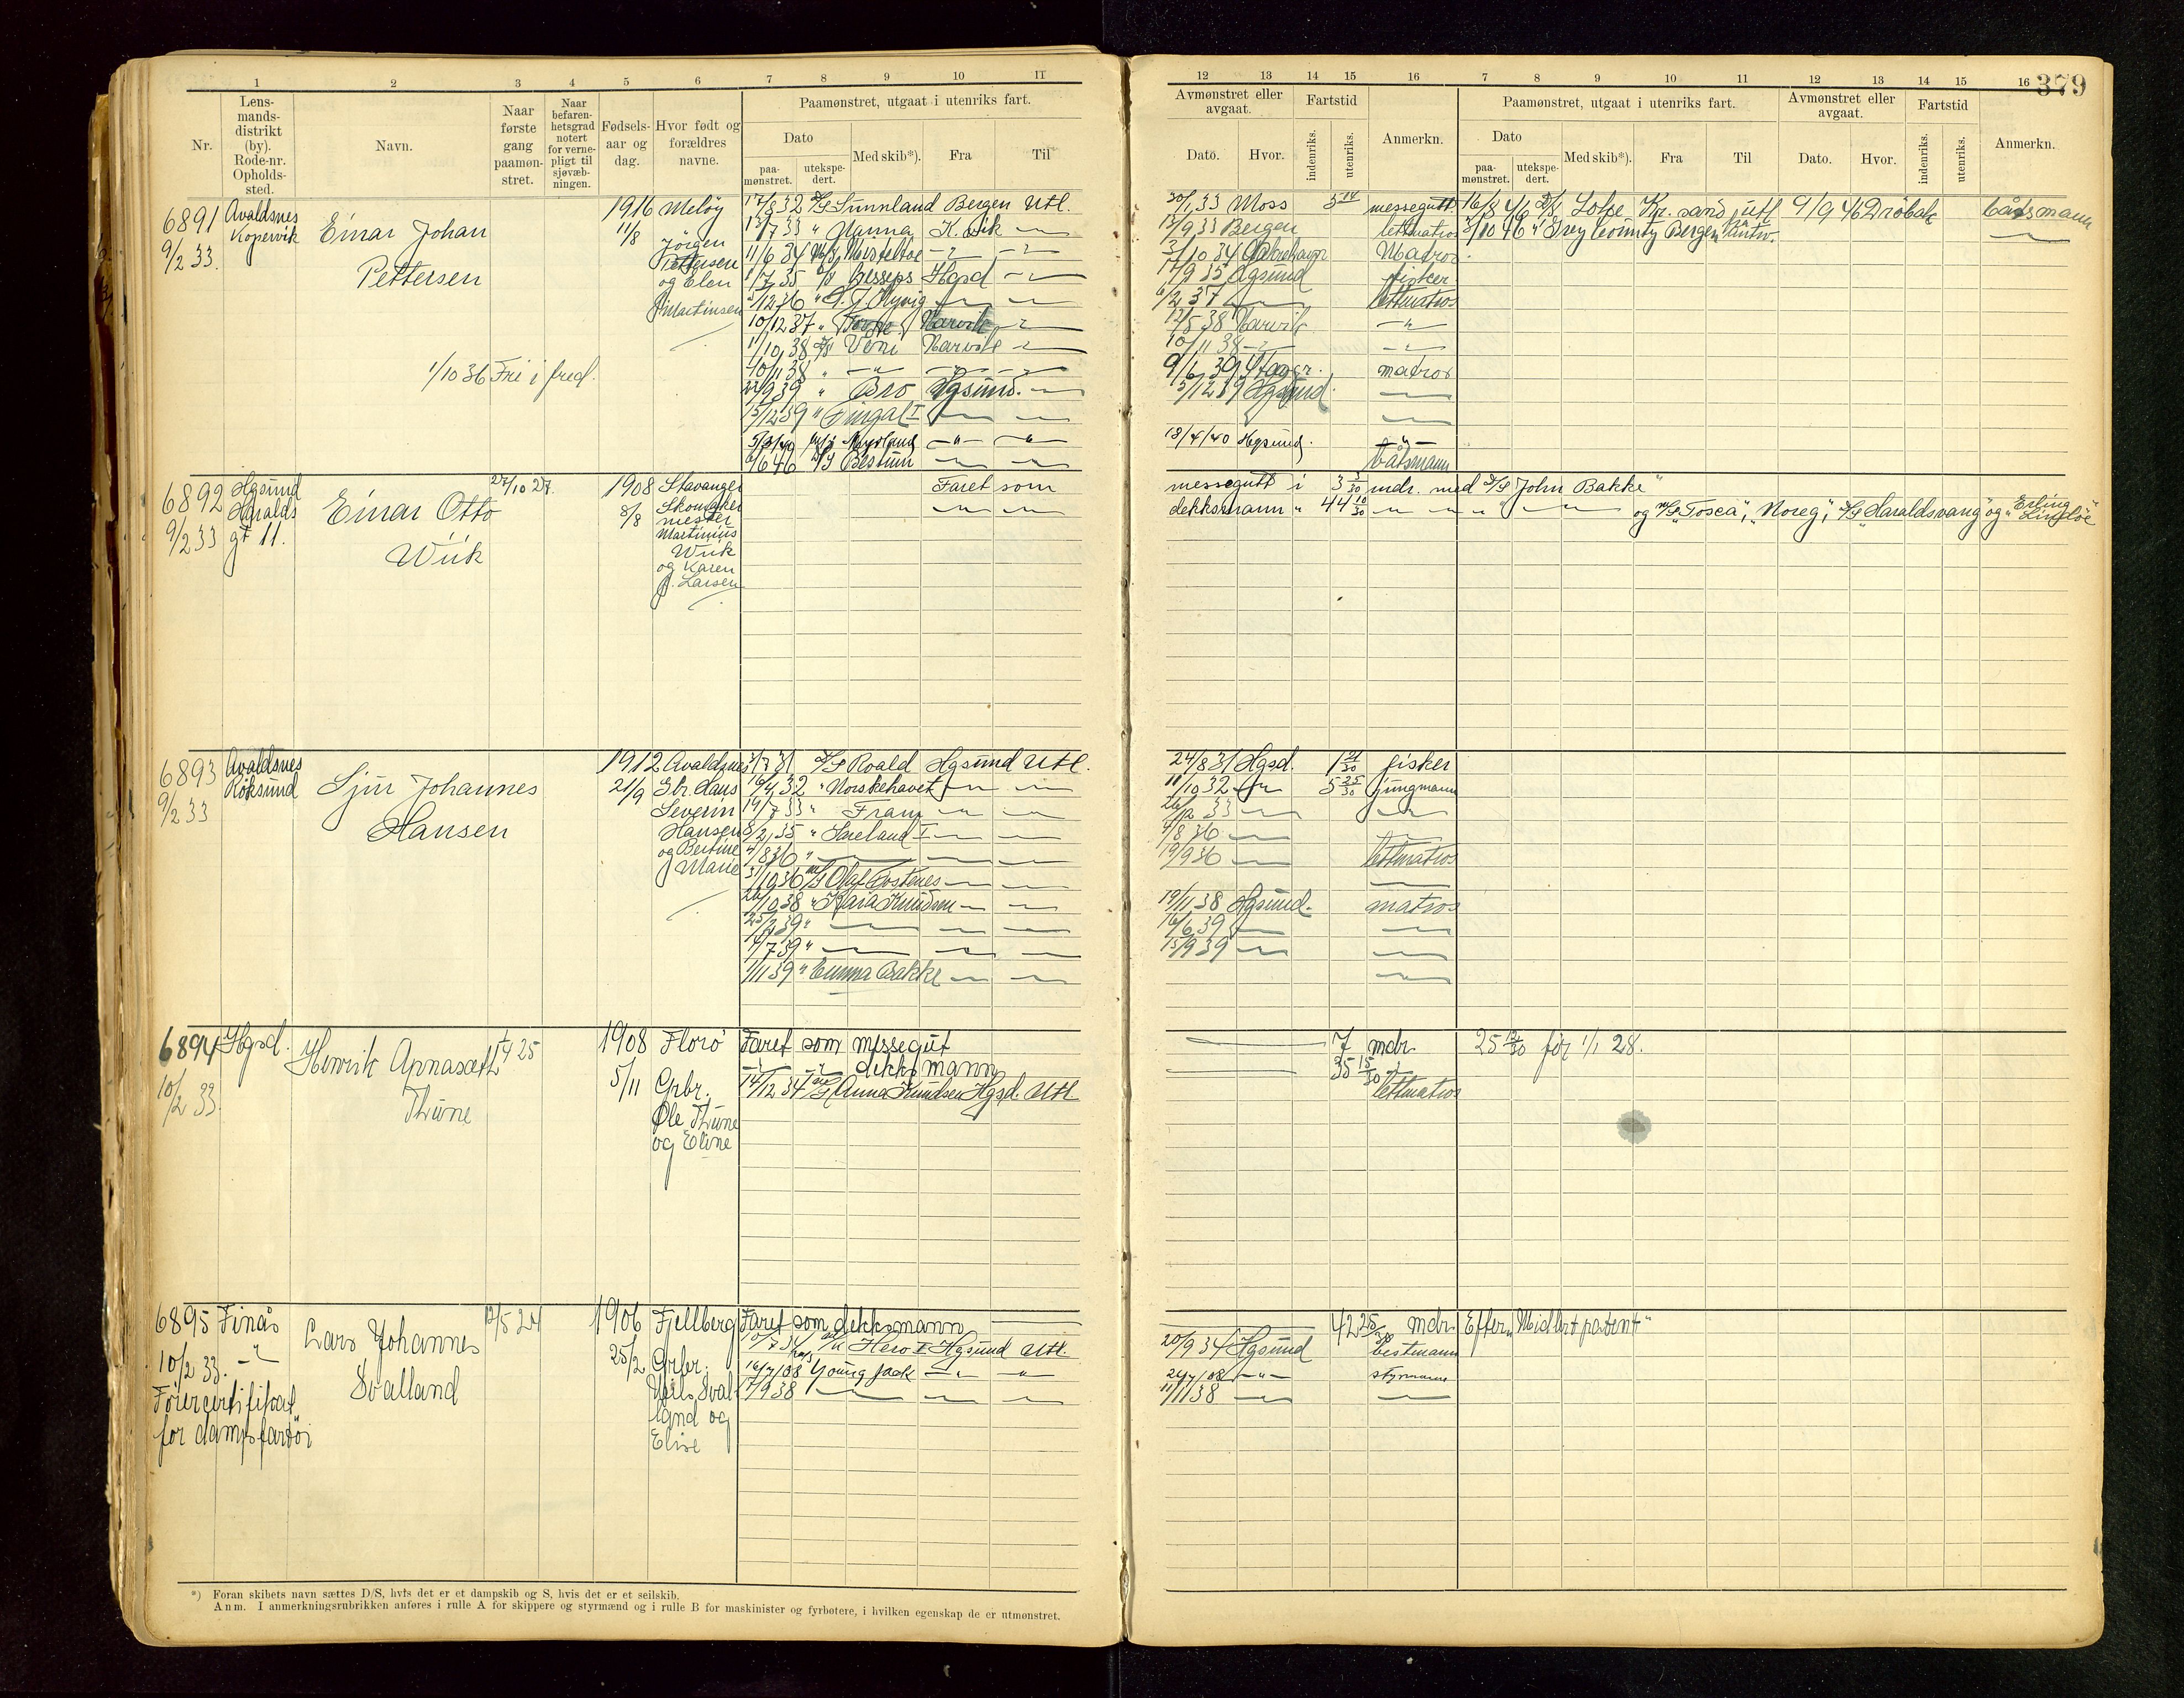 1 2 3 4 5 6 7 8 9 10 11
Nr.
Lens-
mands-
distrikt
(by).
Rode-nr.
Opholds-
sted.
Navn.
Naar
første
gang
paamøn-
stret.
Naar
befaren-
hetsgrad
notert
for verne-
pligt til
sjøvæb-
ningen.
Fødsels-
aar og
dag.
Hvor født og
forældres
navne.
Paamønstret, utgaat i utenriks fart.
Dato
paa-
mønstret.
utekspe-
dert.
Med skib*).
Fra
Til
12 13 14 15 16 7 8 9 10 11 12 13 14 15 16 379
Avmønstret eller
avgaat.
Dato.
Hvor.
Fartstid
indenriks.
utenriks.
Anmerkn.
Paamønstret, utgaat i utenriks fart.
Dato
paa-
mønstret.
utekspe-
dert.
Med skib*).
Fra
Til
Avmønstret eller
avgaat.
Dato.
Hvor.
Fartstid
indenriks.
utenriks.
Anmerkn.
6891
9/2 33.
Avaldsnes
Kopervik
Einar Johan
Pettersen
1/10 36 Fri i fred.
1916
11/8
Meløy
Jørgen
Pettersen
og Elen
Martinsen
17/8 32 D/S Sunnland Bergen Utl.
13/7 33 " Nanna K.vik
11/6 34 M/S
1/7 35 Hgsd
10/12 37 " Narvik
1/10 38 D/S Veni Narvik
10/11 38 "
22/9 39 " Bro Hgsund.
15/12 39 " Fingal I
5/3/40 M/S Myrland
6/6 46 D/S Bestum
20/1 33 Moss 5 14 messegutt.
15/9 33 Bergen lettmatros
3/10 34 Matros
17/9 35 fisker
6/2 37 lettmatros
12/5 38 Narvik
10/11 38
9/6 39 matros
15/12 39 Hgsund.
18/4/40 Hgsund.
båtsmann
16/8 46 D/S Kr. sand utl 9/9 46 Drøbak båtsmann
3/10 46 " Grey County Bergen
6892
9/2 33
Hgsund
Haralds
gt 11.
Einar Otto
Wiik
27/10 27.
1908
8/8
Stavanger
Skomaker
mester
Martinius
Wiik
og Karen
J. Larsen
Faret som
messegutt i 3 3/30 mdr. med D/S "John Bakke"
dekksmann " 44 10/30 og M/S "Tosca", "Noreg", D/S "Haraldsvang" og "Erling
Lindøe"
6893
9/2 33
Avaldsnes
Røksund
Sjur Johannes
Hansen
1912
21/9
Avaldsnes
Gbr. Hans
Severin
Hansen
og Bertine
Marie
D/S Roald Hgsund Utl.
16/4 32 " Norskehavet
19/7 33 " Fram
8/2 35 "
4/8 36 "
31/10 36 M/S Olaf Bostenes
26/10 38 " Kaia Knudsen
25/2 39 "
14/7 39 "
1/11 39 " Emma Bakke
24/8 31 Hgsd. 1 21/30 fisker
11/10 32 5 25/30 jungmann
26/2 33
4/8 36
19/9 36 lettmatros
19/11 38 Hgsund. matros
16/6 39
15/9 39
6894
10/2 33.
Hgsd.
Henrik Apnasæth
Thune
1/4 25
1908
5/11
Florø
Gbr.
Ole Thune
og Eline
Faret som messegut
dekksmann
14/12 34 M/S Anna Knudsen Hgsd. Utl.
7 mdr.
35 15/30
lettmatros
25 12/30 før 1/1 28.
6895
10/2 33.
Finås
Førercertifikat
for dampfartøi
Lars Johannes
Svalland
12/5 24
1906
25/2
Fjellberg
Grbr.
Nils Sval-
land og
Elise
Faret som dekksmann
10/7 34 M/K Hero I Hgsund Utl.
Young Jack
17/9 38
42 25/30 mdr. Efter "Midlert patent"
20/9 34 Hgsund bestmann
styrmann
11/11 38
*) Foran skibets navn sættes D/S, hvis det er et dampskib og S, hvis det er et seilskib.
Anm. I anmerkningsrubrikken anføres i rulle A for skippere og styrmænd og i rulle B for maskinister og fyrbøtere, i hvilken egenskap de er utmønstret.